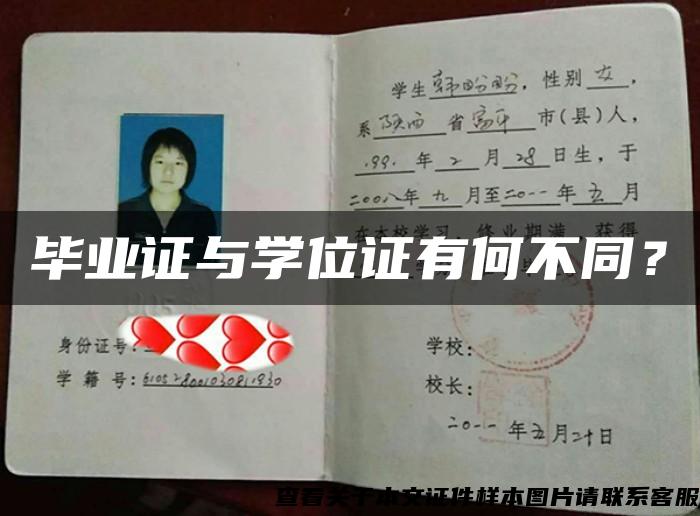 学生韩盼盼，性别女，
系陕西省富平市(县)人，
1991年2月28日生，于
二00八年九月至二0一一年五月
在本校学习，终业期满，获得
毕业证与学位证有何不同？
身份证号：
学籍号：
学校：
校长：
二0一一年五月二十日
查看关于本文证件样本图片请联系客服